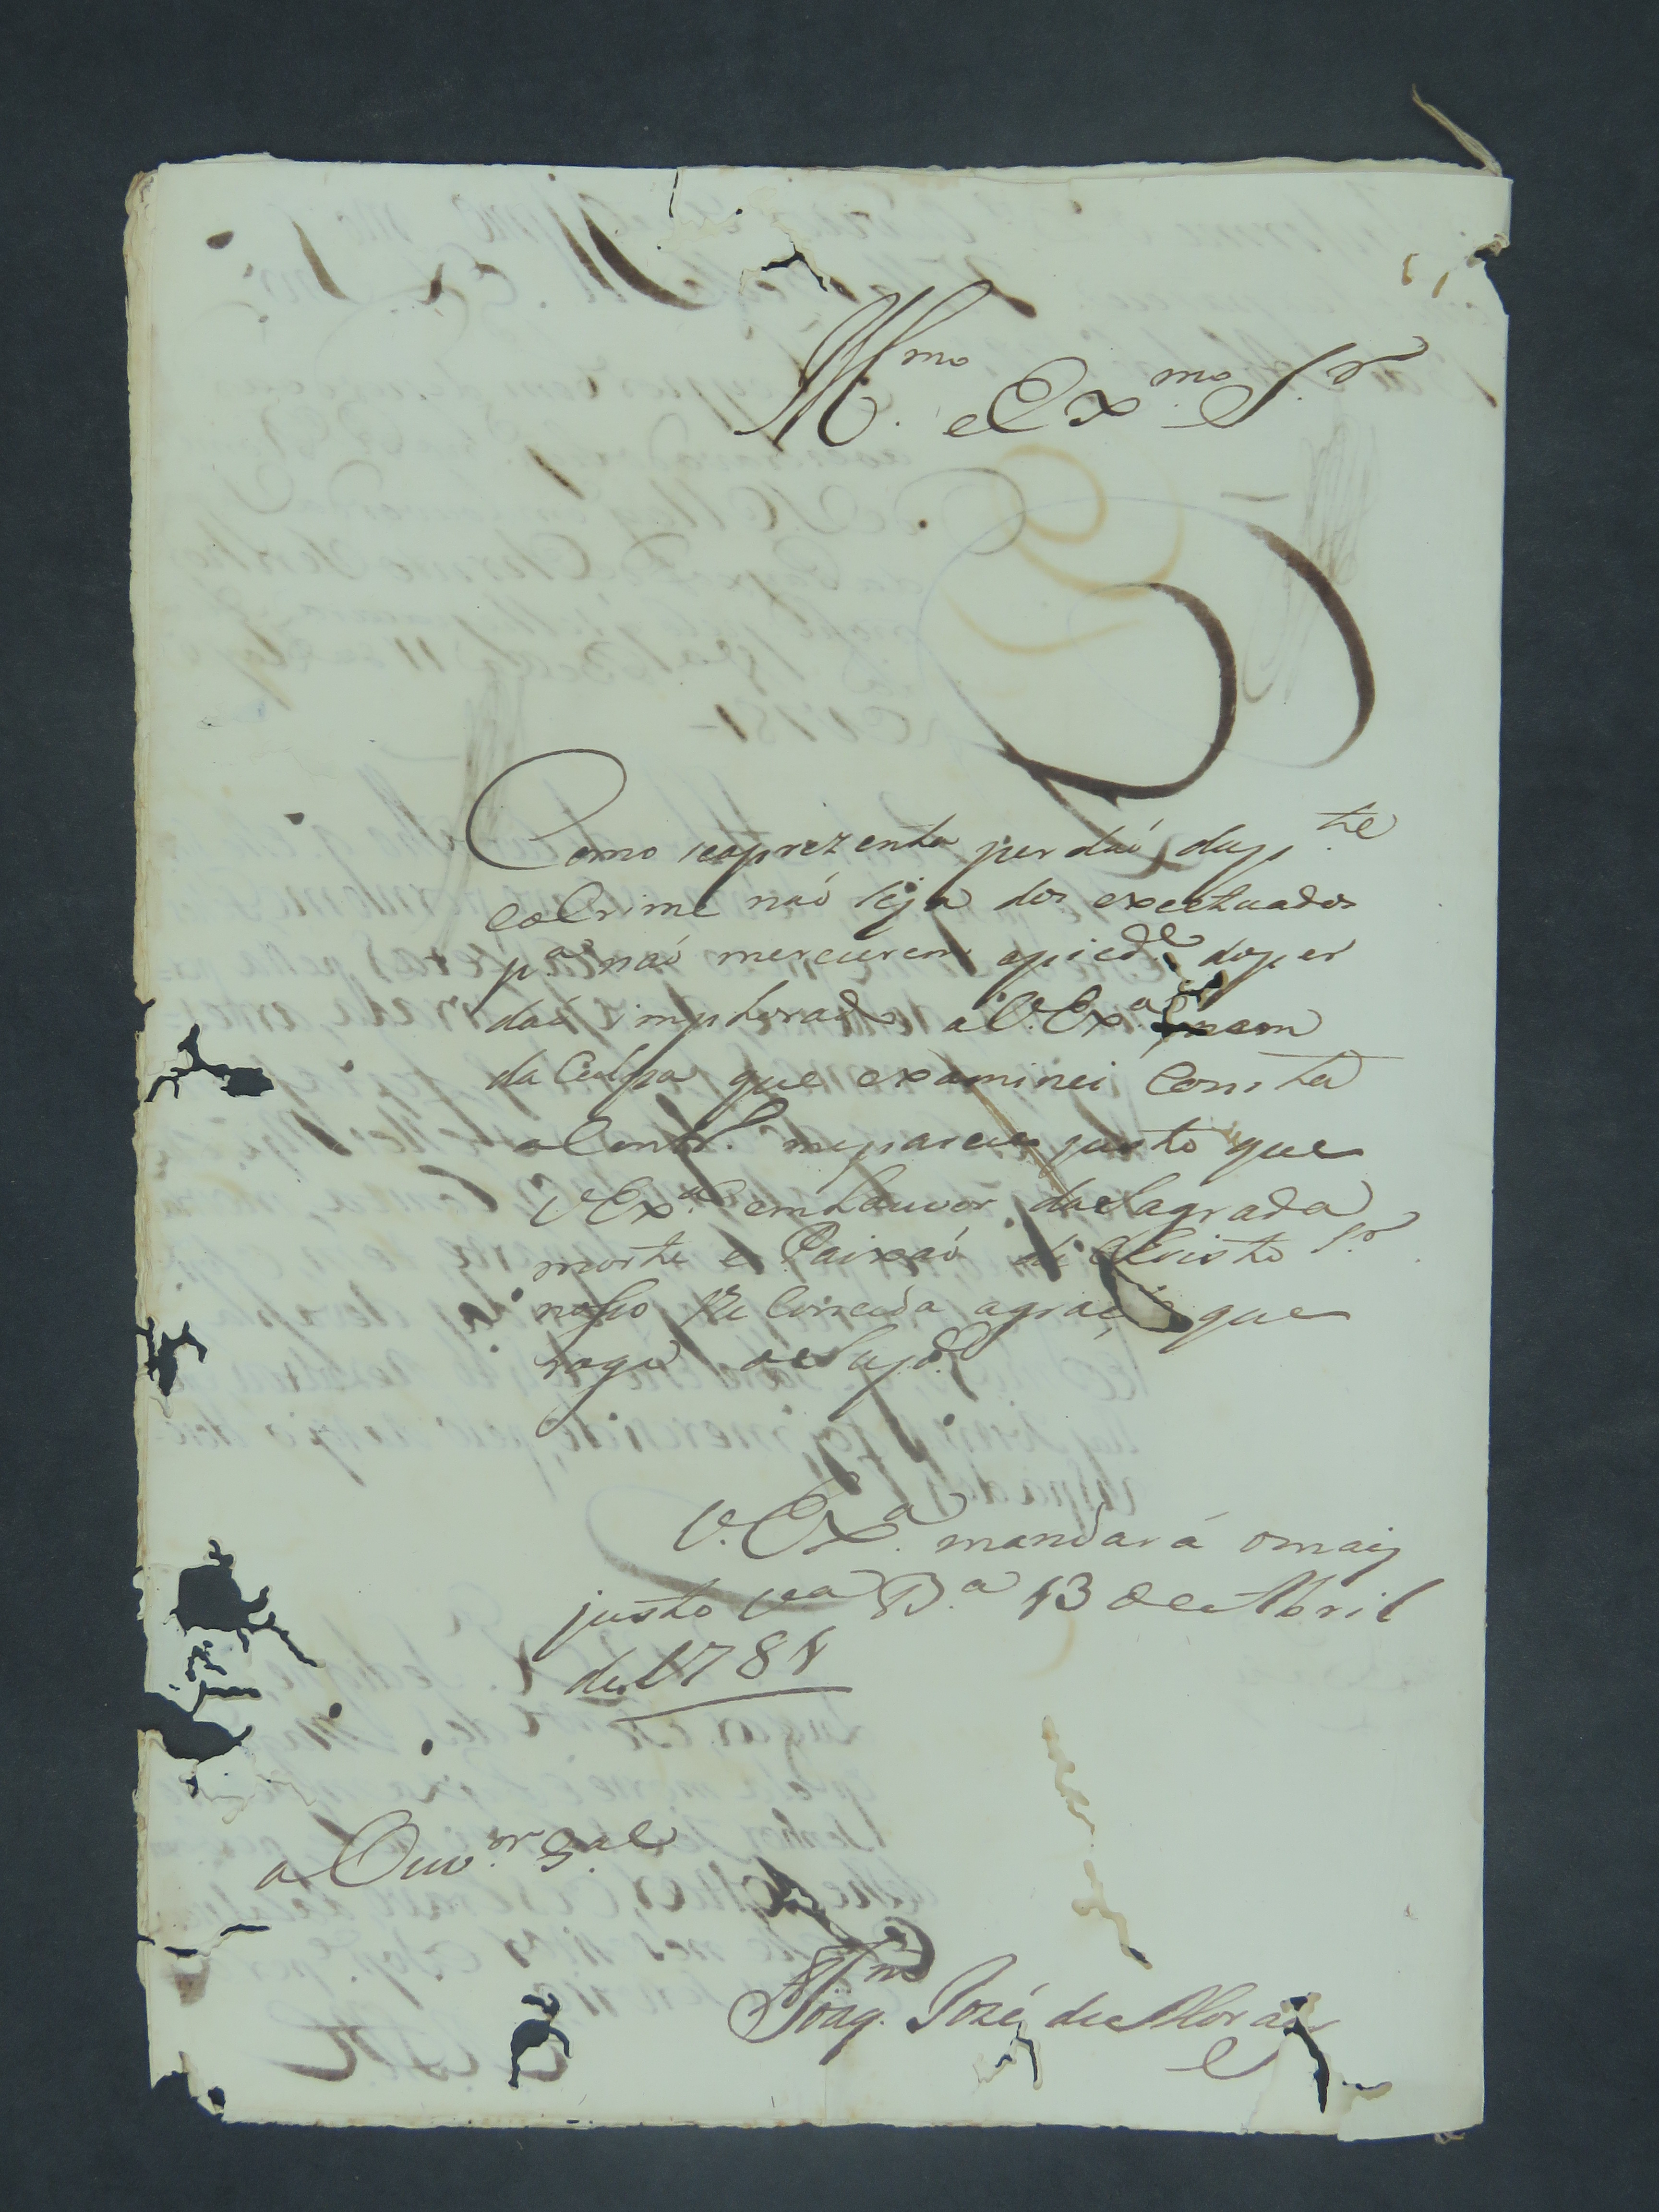 Illmo. e Exmo. Sr.
Como se aprezenta perdaõ da pte
e o Crime naõ seja dos exectuados
pa. naõ mererecem a pied.e do per
daõ implorado a V. Exa. e nem
da Culpa que examinei Consta
o Contr.o me parece justo que
V Exa. em Louvor da Sagrada
morte e Paixaõ de Christo Sr.
nosso lhe Conceda a graça que
roga o Sup.e
V. Exa. mandará o mais
justo Va Ba. 13 de Abril
de 1781
O Ouvor. gal
Joaqm. José de Moraes